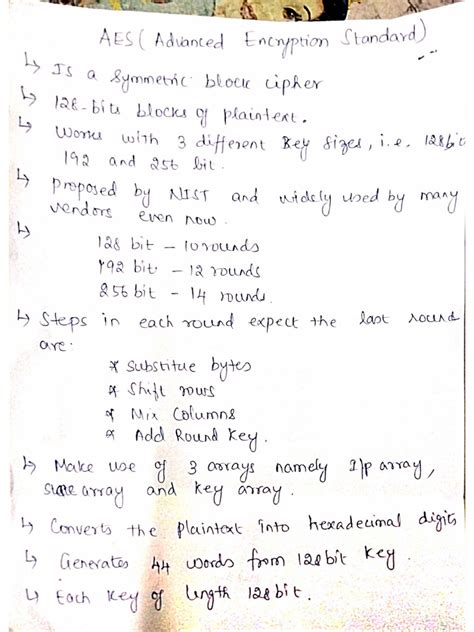 AES (Advanced Encryption Standard)
↳ Is a symmetric block cipher
↳ 128-bits blocks of plaintext.
↳ Works with 3 different key sizes, i.e. 128bit
192 and 256 bit.
↳ proposed by NIST and widely used by many
vendors even now.
↳ 128 bit - 10 rounds
192 bit - 12 rounds
256 bit - 14 rounds.
↳ Steps in each round expect the last round
are:
* Substitue bytes
* Shift rows
* Mix Columns
* Add Round Key.
↳ Make use of 3 arrays namely I/p array,
state array and key array.
↳ Converts the plaintext into hexadecimal digits
↳ Generates 44 words from 128 bit key.
↳ Each key of length 128 bit.